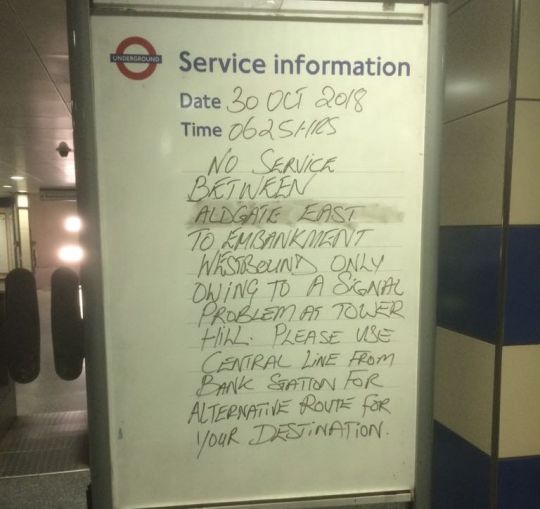 UNDERGROUND
Service information
Date 30 OCT 2018
Time 0625HRS
NO SERVICE
BETWEEN
ALDGATE EAST
TO EMBANKMENT
WESTBOUND ONLY
OWING TO A SIGNAL
PROBLEM AT TOWER
HILL. PLEASE USE
CENTRAL LINE FROM
BANK STATION FOR
ALTERNATIVE ROUTE FOR
YOUR DESTINATION.